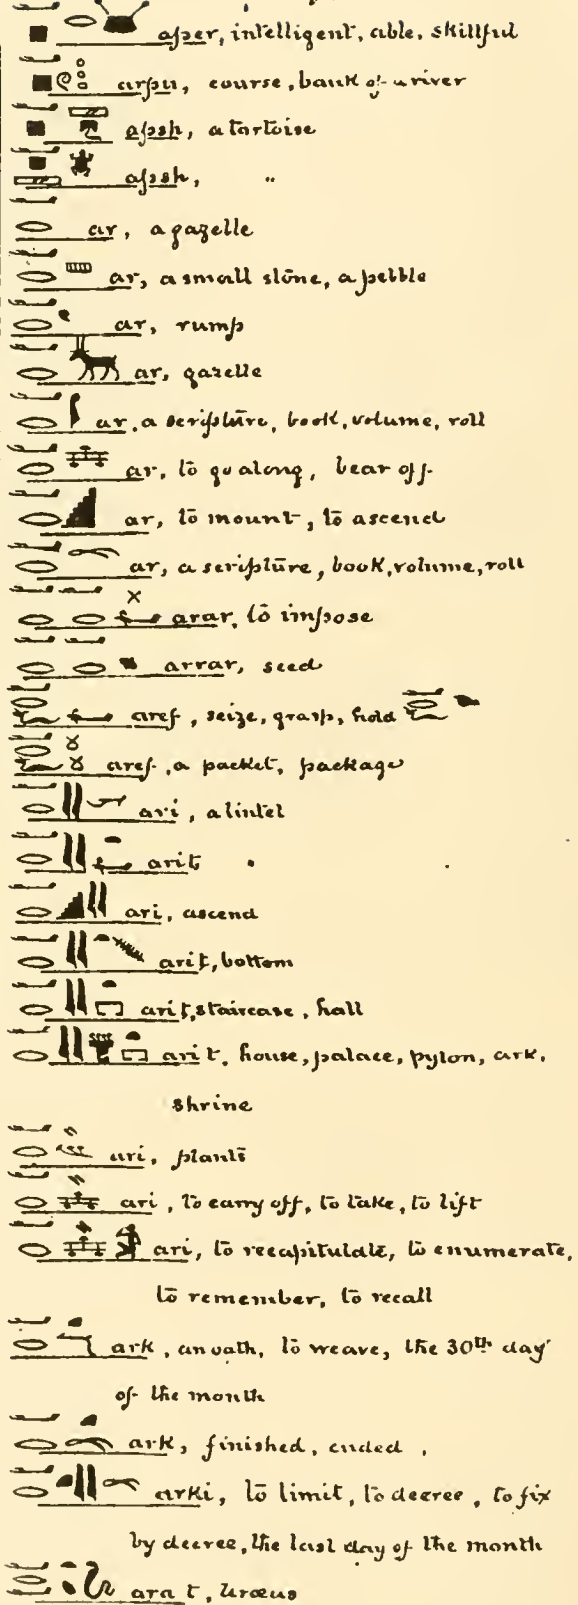 aper, intelligent, able, skillful
arpu, course, bank of a river
apsh, a tortoise
apsh, "
ar, a gazelle
ar, a small stone, a pebble
ar, rump
ar, gazelle
ar, a scripture, book, volume, roll
ar, to go along, bear off
ar, to mount, to ascend
ar, a scripture, book, volume, roll
arar, to impose
arrar, seed
aref, seize, grasp, hold
aref, a packet, package
ari, a lintel
arit
ari, ascend
arit, bottom
arit, staircase, hall
arit, house, palace, pylon, ark,
shrine
ari, plants
ari, to carry off, to take, to lift
ari, to recapitulate, to enumerate,
to remember, to recall
ark, an oath, to weave, the 30th day
of the month
ark, finished, ended,
arki, to limit, to decree, to fix
by decree, the last day of the month
ara t, Uræus